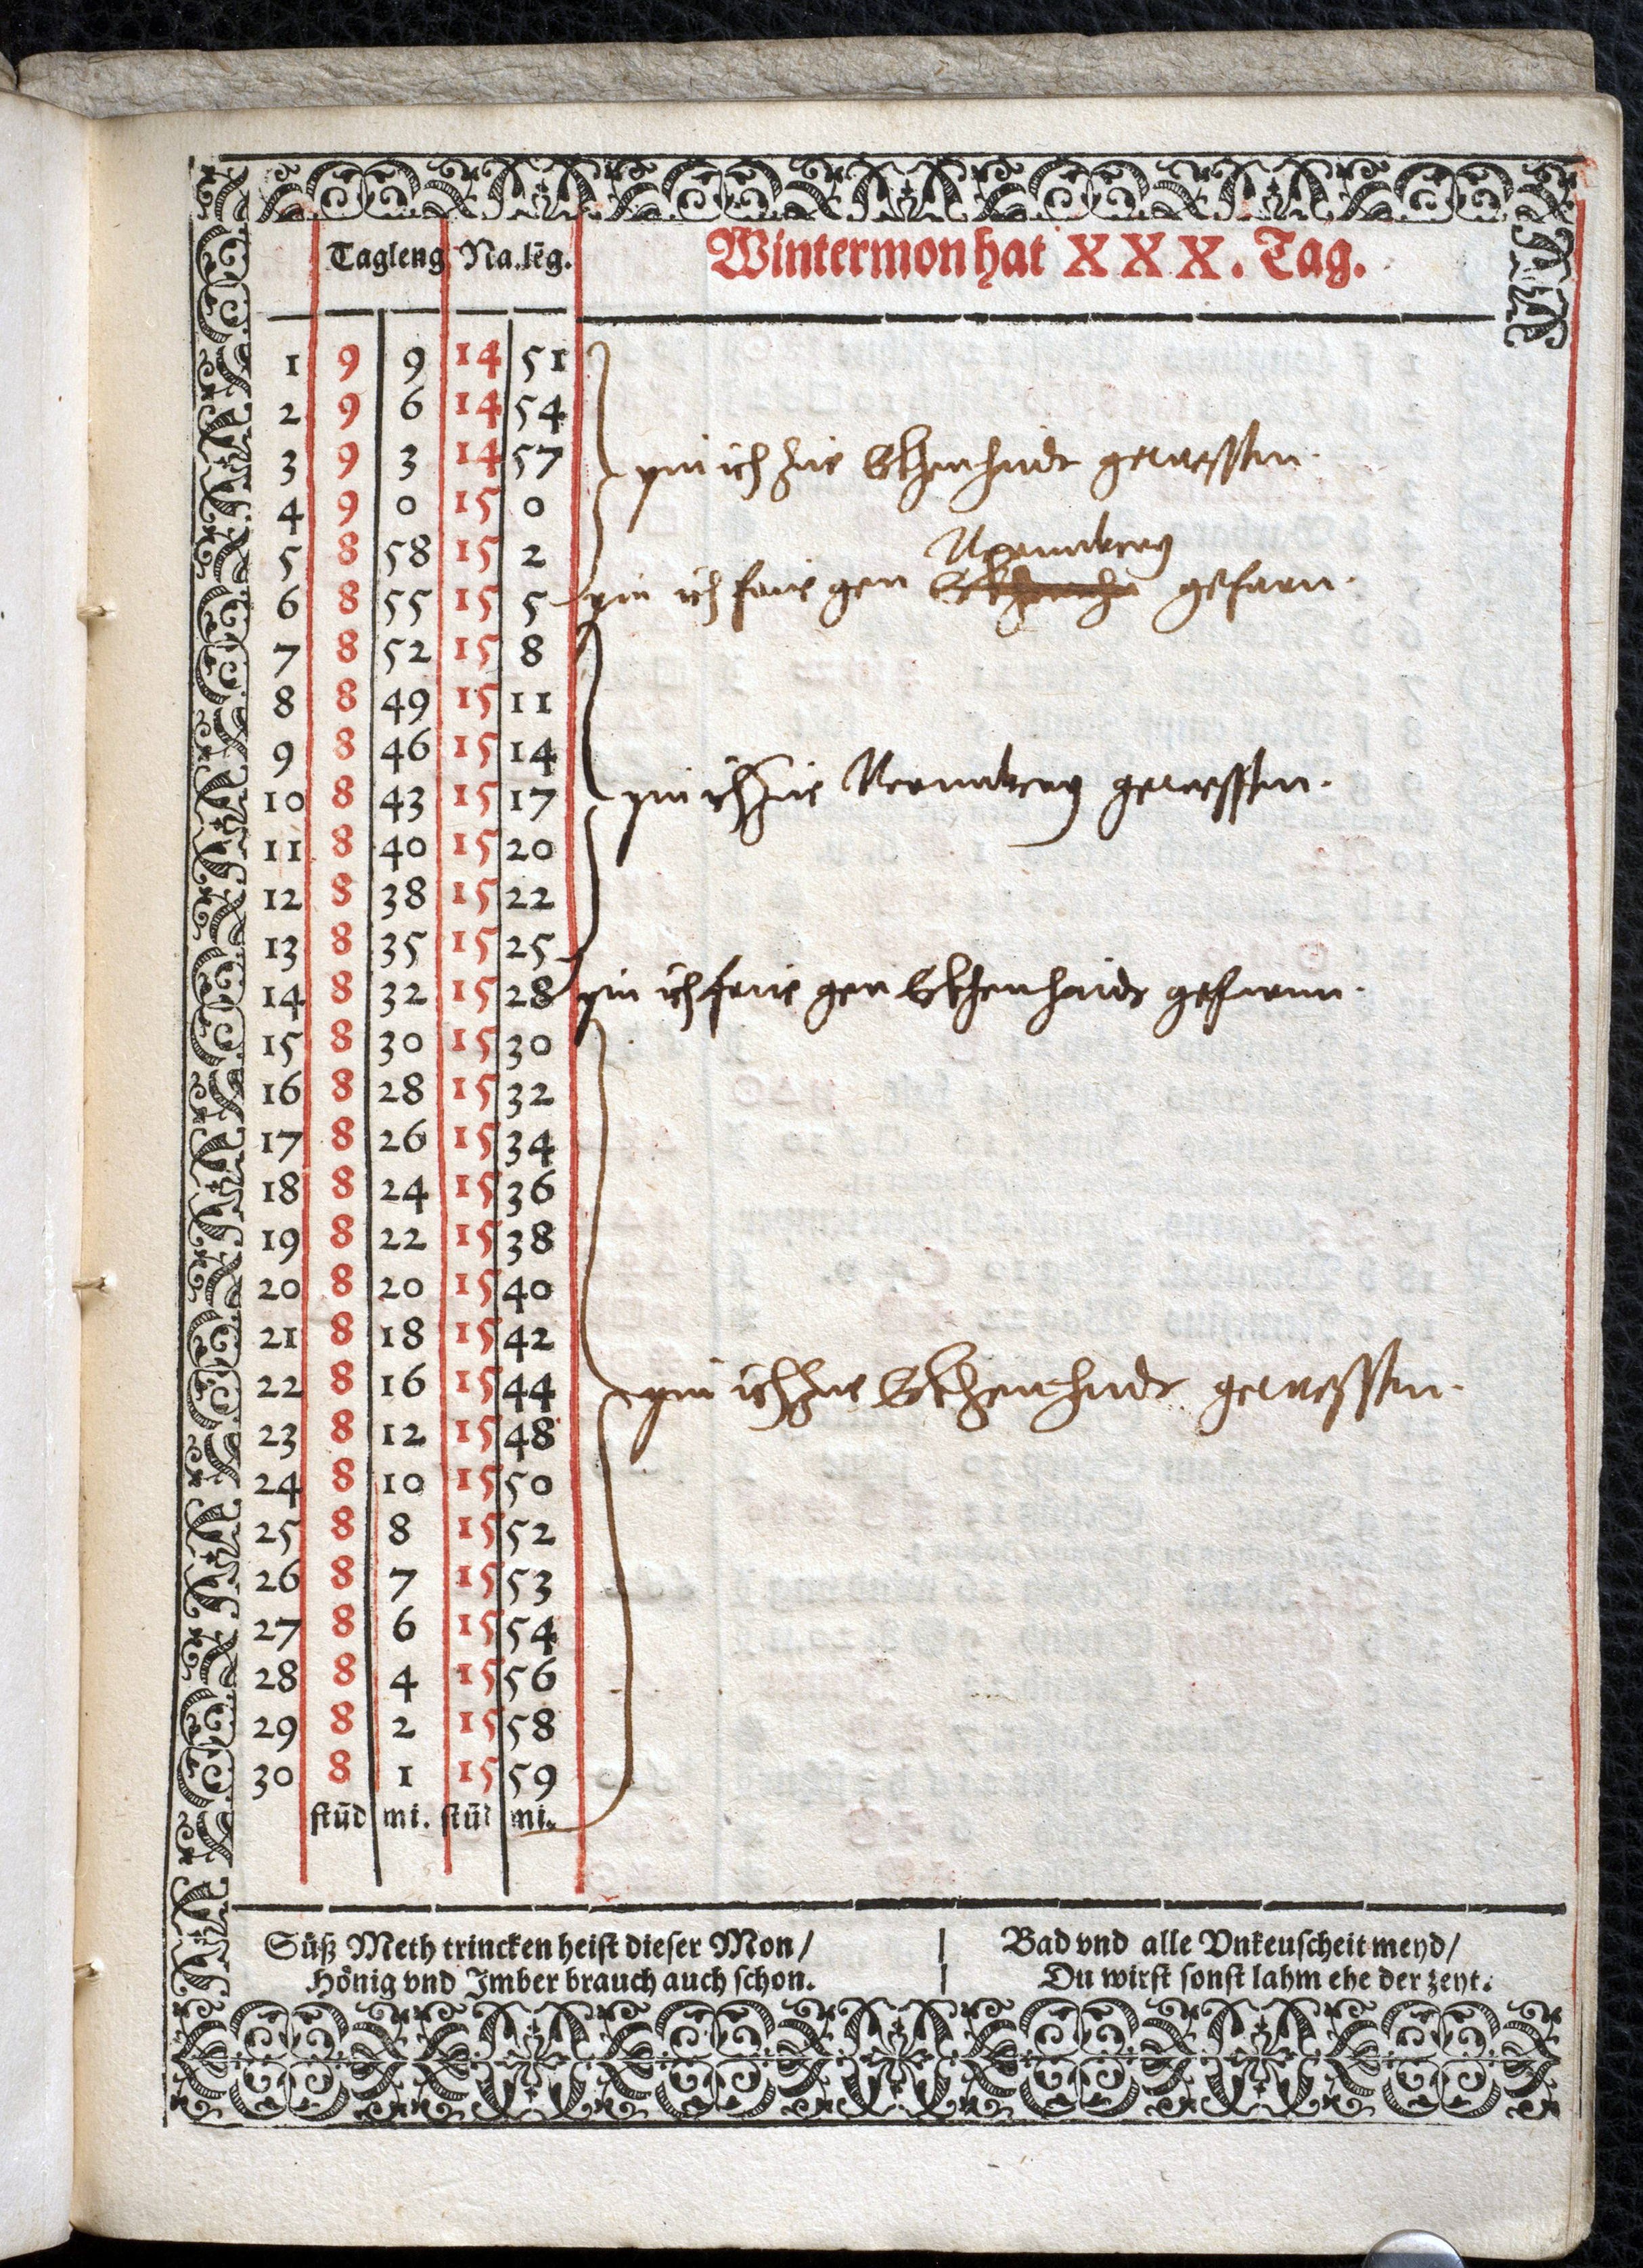 Tagleng Na.lēg. Wintermon hat XXX. Tag.
1 9 9 14 51
2 9 6 14 54
3 9 3 14 57
pin ich zue Ekhenhaidt gewessen.
4 9 0 15 0
5 8 58 15 2
Nernnberg
6 8 55 15 5 pin ich frue gen gefarn.
7 8 52 15 8
8 8 49 15 11
9 8 46 15 14
10 8 43 15 17 pin ich zue Nernnberg gewessen.
11 8 40 15 20
12 8 38 15 22
13 8 35 15 25
14 8 32 15 28 pin ich frue gen Ekhenhaidt gefarnn.
15 8 30 15 30
16 8 28 15 32
17 8 26 15 34
18 8 24 15 36
19 8 22 15 38
20 8 20 15 40
21 8 18 15 42
22 8 16 15 44 pin ich zue Ekhenhaidt gewessen.
23 8 12 15 48
24 8 10 15 50
25 8 8 15 52
26 8 7 15 53
27 8 6 15 54
28 8 4 15 56
29 8 2 15 58
30 8 1 15 59
stūd mi. stūd mi.
Süß Meth trincken heist dieser Mon/
Hönig vnd Imber brauch auch schon.
Bad vnd alle Vnkeuscheit meyd/
Du wirst sonst lahm ehe der zeyt.